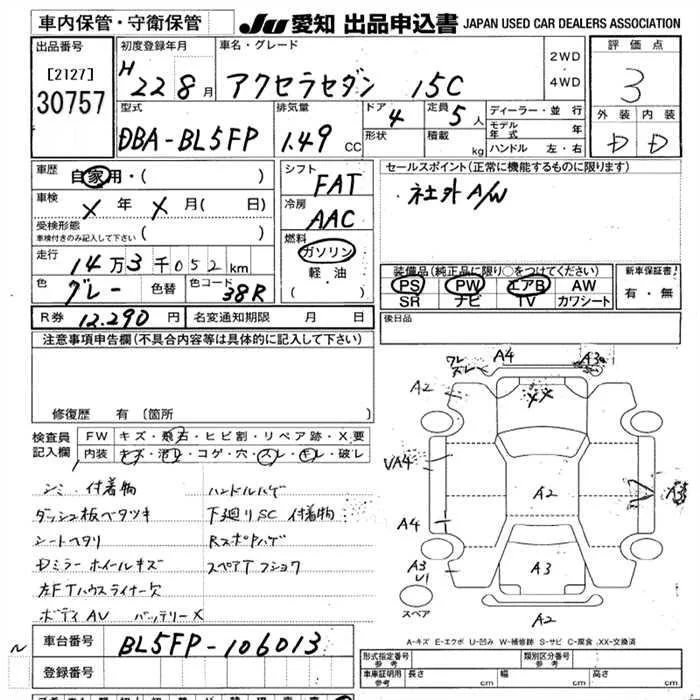 車内保管・守衛保管
JU 愛知 出品申込書 JAPAN USED CAR DEALERS ASSOCIATION
出品番号
[2127]
30757
初度登録年月
H 22 8月
車名・グレード
アクセラセダン 15C
2WD
4WD
評価点
3
外装 内装
D D
型式
DBA-BL5FP
排気量
1.49 CC
ドア 4
形状
定員 5人
積載 kg
ディーラー・並行
モデル年式 年
ハンドル 左・右
車歴
自家用・( )
車検
X 年 X 月( 日)
受検形態
車検付きのみ記入して下さい ( )
走行
14万3千052km
色 グレー 色替 色コード 38R
シフト
FAT
冷房
AAC
燃料
ガソリン
軽油
( )
セールスポイント(正常に機能するものに限ります)
社外A/W
装備品(純正品に限り○をつけてください)
PS PW エアB AW
SR ナビ TV カワシート
新車保証書
有・無
R券 12,290円 名変通知期限 月 日
後日品
注意事項申告欄(不具合内容等は具体的に記入して下さい)
修復歴 有 (箇所 )
検査員記入欄
FW キズ・飛石・ヒビ割・リペア跡・X要
内装 キズ・汚れ・コゲ・穴・スレ・キレ・破レ
シミ・付着物 ハンドルハゲ
ダッシュ板ベタツキ 下廻りSC 付着物
シートヘタリ
Dミラー ホイールキズ スペアTフショク
左FTハウスライナー欠
ボディAV バッテリーX
ワレ
スレ
A4 A3
A2 XX
VA4
A2
A4
A3
U1
A3
A2
スペア
A-キズ E-エクボ U-凹み W-補修跡 S-サビ C-腐食 XX-交換済
車台番号 BL5FP-106013
登録番号
形式指定番号
参考
類別区分番号
参考
車庫証明用
参考
長さ cm 幅 cm 高さ cm